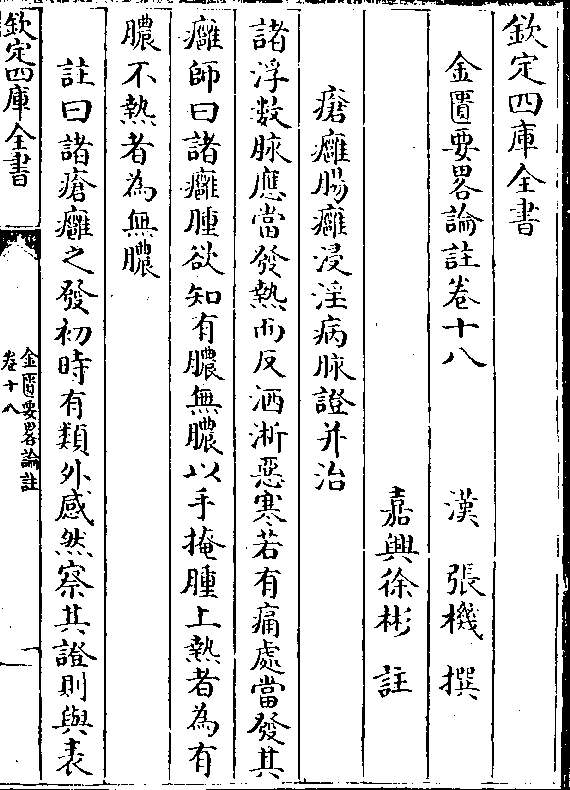 欽定四庫全書
金匱要畧論註卷十八
漢 張機 撰
嘉興徐彬 註
瘡癰腸癰浸淫病脉證并治
諸浮数脉應當發熱而反洒淅惡寒若有痛處當發其
癰師曰諸癰腫欲知有膿無膿以手掩腫上熱者為有
膿不熱者為無膿
註曰諸瘡癰之發初時有類外感然察其證則與表
欽定四庫全書
金匱要畧論註
卷十八